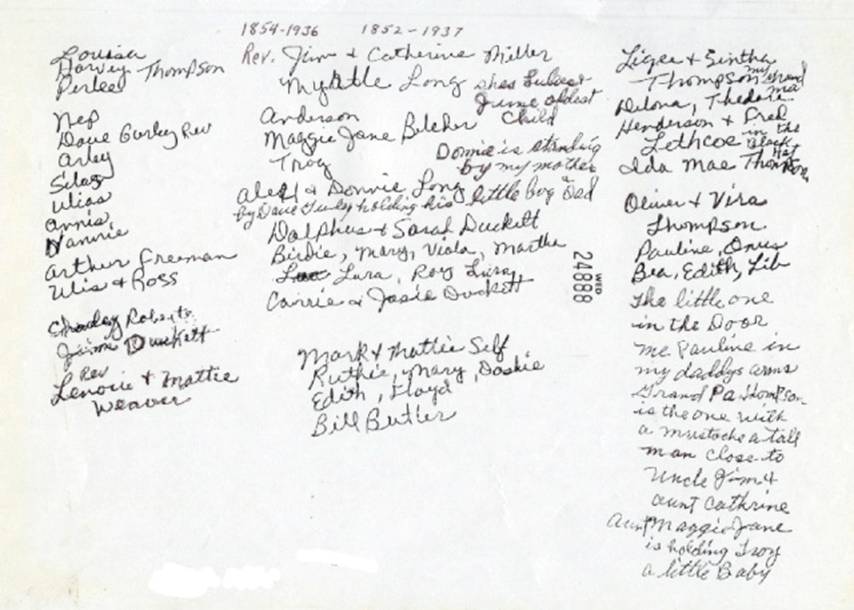 Louisa
Harvey
Perlee Thompson
Nep
Dave Gurley Rev
Arley
Silas
Ulias
Annis
Nannie
Arthur Freeman
Ulis & Ross
Charley Roberts
Jaime Duckett
Rev
Lenorie & Mattie
Weaver
1854-1936 1852-1937
Rev. Jim & Catherine Miller
Myrtle Long shes
June oldest
Child
Anderson
Maggie Jane Belcher
Troy
Donnie is standing
by my mother
Aleff & Donnie Long
by Dave Gurley holding his little boy Dad
Dolphus & Sarah Duckett
Birdie, Mary, Viola, Martha
Lura, Roy
Carrie & Josie Duckett
WED
24888
Mark & Mattie Self
Ruthie, Mary, Doskie
Edith, Floyd
Bill Butler
Ligee & Sintha
Thompson my grand
ma
Delona, Thedore
Henderson & Fred
Lethcoe in the
Black
Hat
Ida Mae Thompson
Oliver & Vira
Thompson
Pauline, Onus
Bea, Edith, Lib
The little one
in the Door
me Pauline in
my daddys arms
Grand Pa Thompson
is the one with
a mustache a tall
man close to
Uncle Jim &
aunt Cathrine
Aunt Maggie Jane
is holding Troy
a little Baby